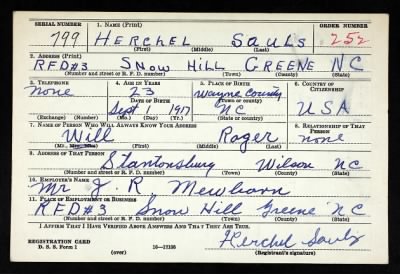 SERIAL NUMBER 1. NAME (Print) ORDER NUMBER
799 HERCHEL SAULS 252
(First) (Middle) (Last)
2. ADDRESS (Print)
RFD#3 SNOW HILL GREENE NC
(Number and street or R. F. D. number) (Town) (County) (State)
3. TELEPHONE 4. AGE IN YEARS 5. PLACE OF BIRTH 6. COUNTRY OF CITIZENSHIP
None 23 Wayne County
DATE OF BIRTH (Town or county)
Sept 1 1917 NC USA
(Exchange) (Number) (Mo.) (Day) (Yr.) (State or country)
7. NAME OF PERSON WHO WILL ALWAYS KNOW YOUR ADDRESS 8. RELATIONSHIP OF THAT PERSON
Will Roger none
(Mr., Mrs., Miss) (First) (Middle) (Last)
9. ADDRESS OF THAT PERSON
Stantonsburg Wilson NC
(Number and street or R. F. D. number) (Town) (County) (State)
10. EMPLOYER'S NAME
Mr J. R. Mewborn
11. PLACE OF EMPLOYMENT OR BUSINESS
RFD#3 Snow Hill Greene NC
(Number and street or R. F. D. number) (Town) (County) (State)
I AFFIRM THAT I HAVE VERIFIED ABOVE ANSWERS AND THAT THEY ARE TRUE.
REGISTRATION CARD
D. S. S. Form 1 16—17105 Herchel Sauls
(over) (Registrant's signature)